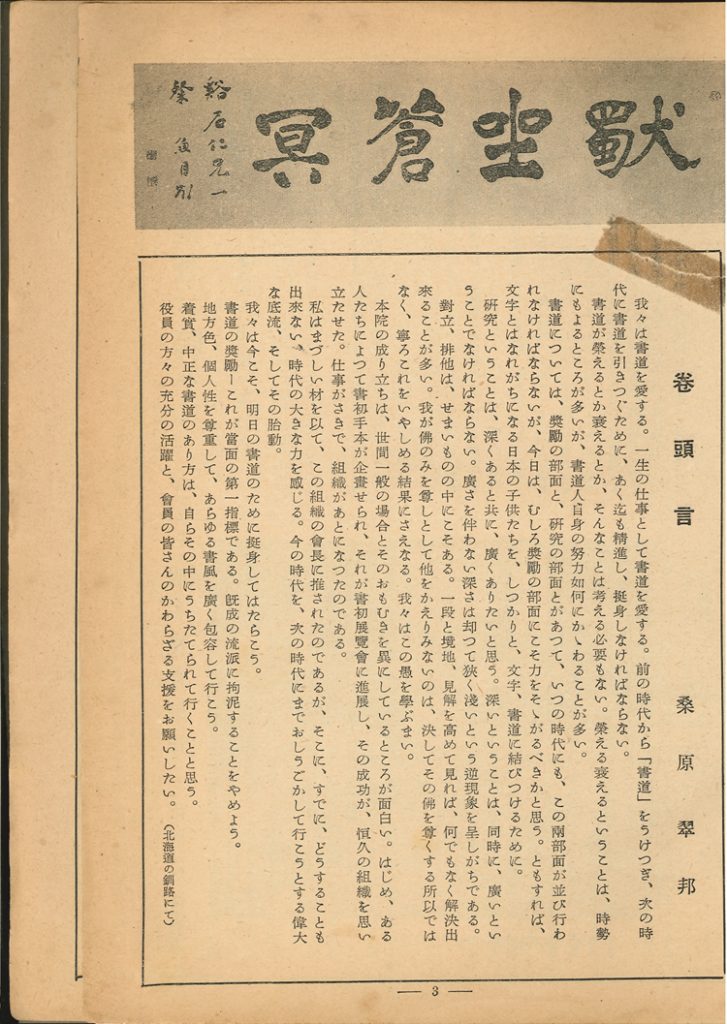 獣坐蒼冥
谿石仁兄一
粲
卷頭言
桑原翠邦
我々は書道を愛する。一生の仕事として書道を愛する。前の時代から「書道」をうけつぎ、次の時
代に書道を引きつぐために、あく迄も精進し、挺身しなければならない。
書道が榮えるとか衰えるとか、そんなことは考える必要もない。榮える衰えるということは、時勢
にもよるところが多いが、書道人自身の努力如何にかゝわることが多い。
書道については、奬勵の部面と、硏究の部面とがあつて、いつの時代にも、この兩部面が並び行わ
れなければならないが、今日は、むしろ奬勵の部面にこそ力をそゝがるべきかと思う。ともすれば、
文字とはなれがちになる日本の子供たちを、しつかりと、文字、書道に結びつけるために。
硏究ということは、深くあると共に、廣くありたいと思う。深いということは、同時に、廣いとい
うことでなければならない。廣さを伴わない深さは却つて狹く淺いという逆現象を呈しがちである。
對立、排他は、せまいものの中にこそある。一段と境地、見解を高めて見れば、何でもなく解決出
來ることが多い。我が佛のみを尊しとして他をかえりみないのは、決してその佛を尊くする所以では
なく、寧ろこれをいやしめる結果にさえなる。我々はこの愚を學ぶまい。
本院の成り立ちは、世間一般の場合とそのおもむきを異にしているところが面白い。はじめ、ある
人たちによつて書初手本が企畫せられ、それが書初展覽會に進展し、その成功が、恒久の組織を思い
立たせた。仕事がさきで、組織があとになつたのである。
私はまづしい材を以て、この組織の會長に推されたのであるが、そこに、すでに、どうすることも
出來ない、時代の大きな力を感じる。今の時代を、次の時代にまでおしうごかして行こうとする偉大
な底流、そしてその胎動。
我々は今こそ、明日の書道のために挺身してはたらこう。
書道の奬勵―これが當面の第一指標である。旣成の流派に拘泥することをやめよう。
地方色、個人性を尊重して、あらゆる書風を廣く包容して行こう。
着實、中正な書道のあり方は、自らその中にうちたてられて行くことと思う。
役員の方々の充分の活躍と、會員の皆さんのかわらざる支援をお願いしたい。（北海道の釧路にて）
― 3 ―